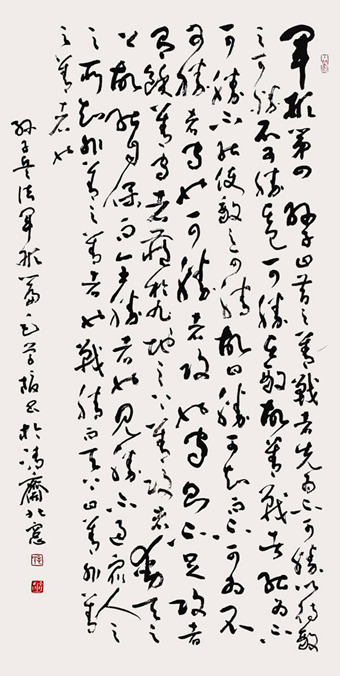 軍形第四孫子曰昔之善戰者先為不可勝以待敵
之可勝不可勝在己可勝在敵故善戰者能為不
可勝不能使敵之可勝故曰勝可知而不可為不
可勝者守也可勝者攻也守則不足攻者
有餘善守者藏於九地之下善攻者動天之
上故能自保而全勝者也見勝不過眾人之
之所知非善之善者也戰勝而天下曰善非善
之善者也
孫子兵法軍形篇書於齋北窗